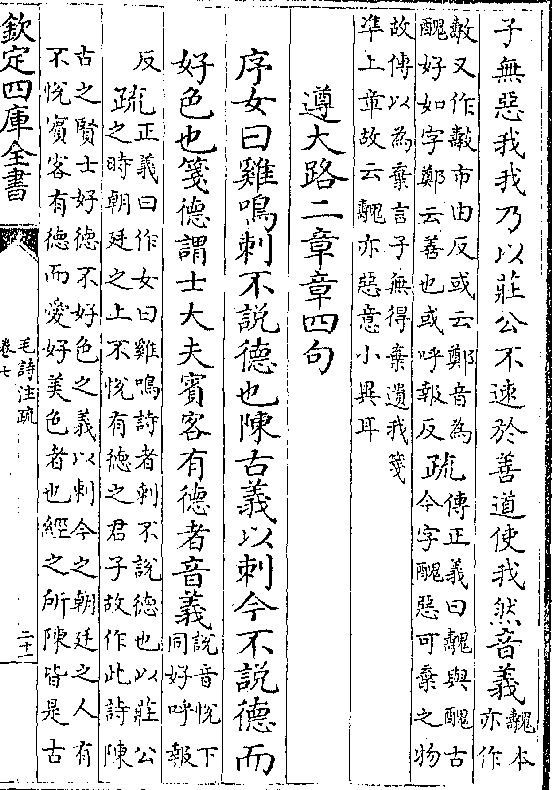 子無惡我我乃以莊公不速於善道使我然音義魗本
亦作
敿又作㪜市由反或云鄭音為
醜好如字鄭云善也或呼報反疏傳正義曰魗與醜古
今字醜惡可棄之物
故傳以為棄言子無得棄遺我箋
準上章故云魗亦惡意小異耳
遵大路二章章四句
序女曰雞鳴刺不說德也陳古義以刺今不說德而
好色也箋德謂士大夫賓客有德者音義說音悅下
同好呼報
反疏正義曰作女曰雞鳴詩者刺不說德也以莊公
之時朝廷之上不悅有德之君子故作此詩陳
古之賢士好德不好色之義以刺今之朝廷之人有
不悅賓客有德而愛好美色者也經之所陳皆是古
欽定四庫全書
毛詩注疏
卷七
二十一